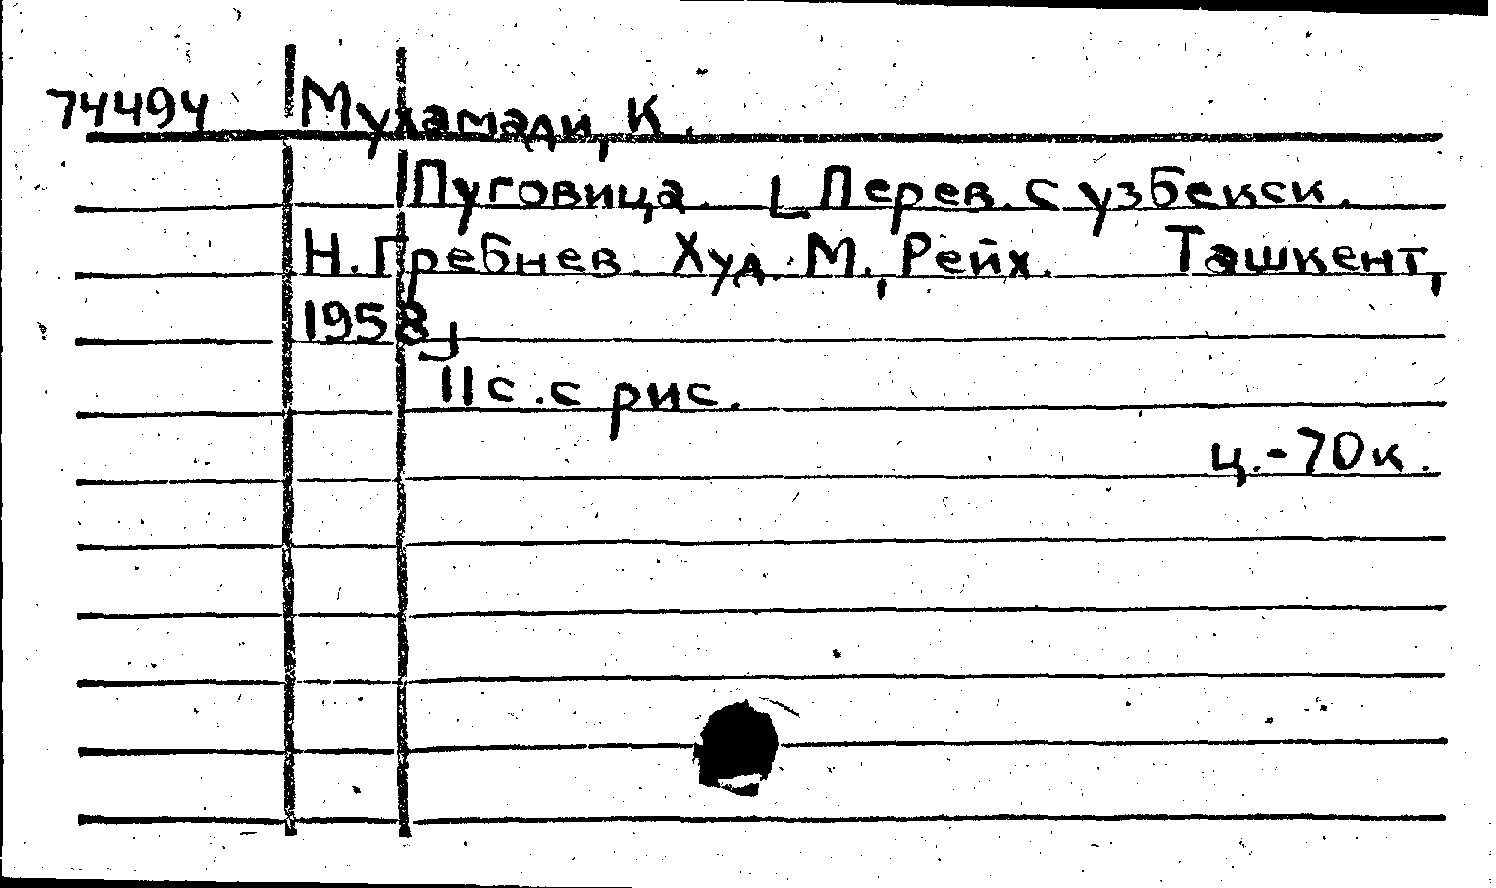 74494 Мухамади, К.
Пуговица. [Перев. с узбекск.
Н. Гребнев. Худ. М., Рейх. Ташкент,
1958]
11 с. с рис.
ц.-70к.